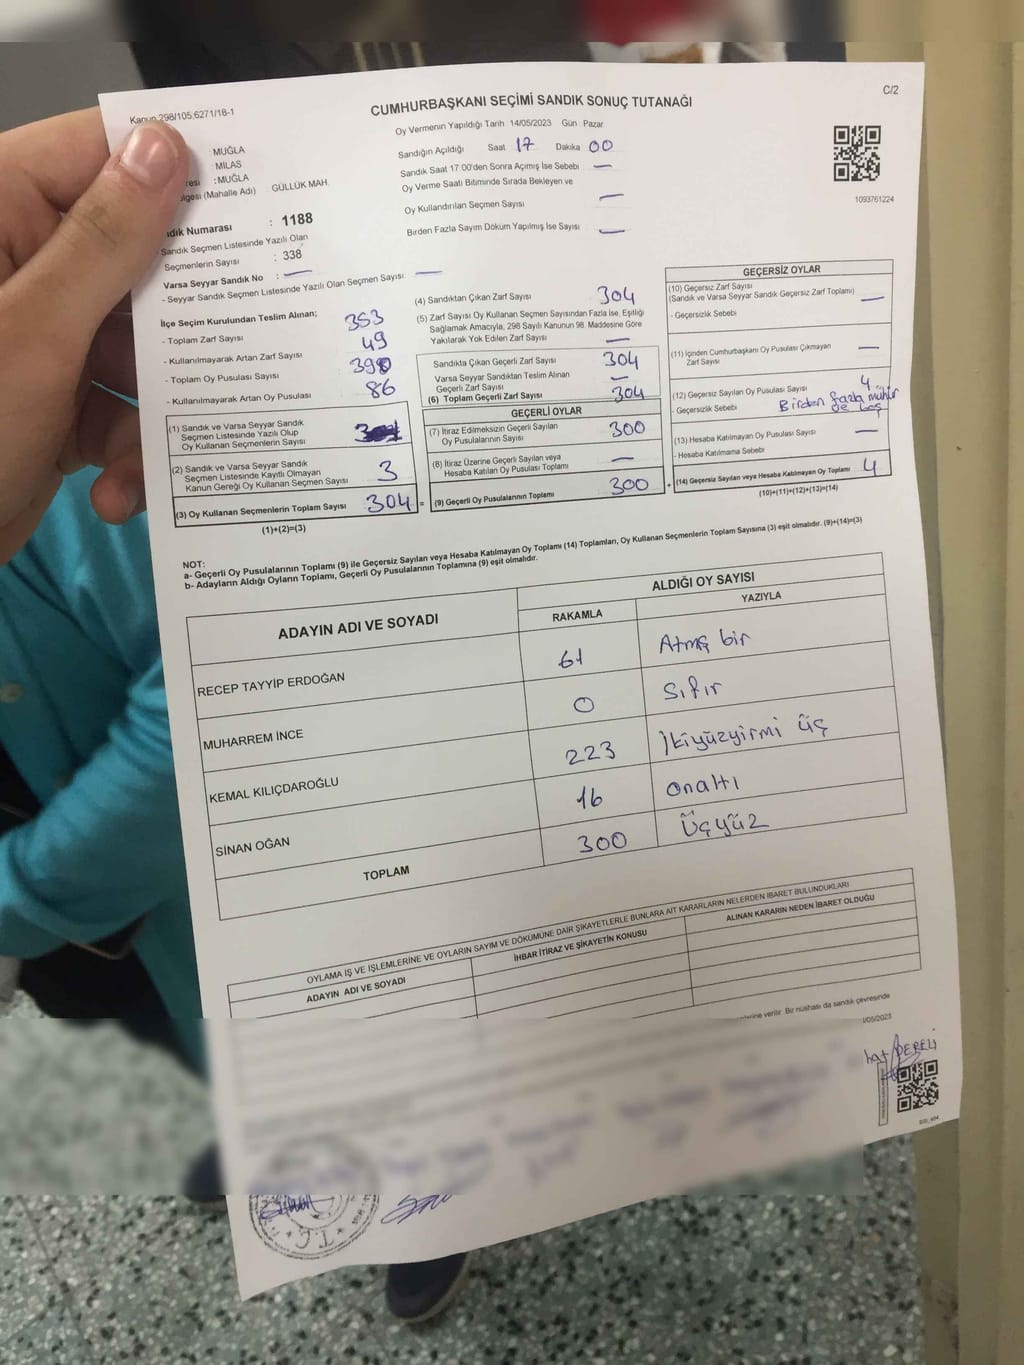 Kanun 298/105,6271/18-1
C/2
CUMHURBAŞKANI SEÇİMİ SANDIK SONUÇ TUTANAĞI
Oy Vermenin Yapıldığı Tarih 14/05/2023 Gün Pazar
MUĞLA
MİLAS
: MUĞLA
(Mahalle Adı) GÜLLÜK MAH.
Sandığın Açıldığı Saat 17 Dakika 00
Sandık Saat 17 00'den Sonra Açımış İse Sebebi —
Oy Verme Saati Bitiminde Sırada Bekleyen ve
Oy Kullandırılan Seçmen Sayısı —
Birden Fazla Sayım Döküm Yapılmış İse Sayısı —
1093761224
Numarası : 1188
Sandık Seçmen Listesinde Yazılı Olan
Seçmenlerin Sayısı : 338
Varsa Seyyar Sandık No : —
- Seyyar Sandık Seçmen Listesinde Yazılı Olan Seçmen Sayısı : —
İlçe Seçim Kurulundan Teslim Alınan;
- Toplam Zarf Sayısı 353
- Kullanılmayarak Artan Zarf Sayısı 49
- Toplam Oy Pusulası Sayısı 390
- Kullanılmayarak Artan Oy Pusulası 86
(1) Sandık ve Varsa Seyyar Sandık
Seçmen Listesinde Yazılı Olup
Oy Kullanan Seçmenlerin Sayısı
(2) Sandık ve Varsa Seyyar Sandık
Seçmen Listesinde Kayıtlı Olmayan
Kanun Gereği Oy Kullanan Seçmen Sayısı 3
(3) Oy Kullanan Seçmenlerin Toplam Sayısı 304 =
(1)+(2)=(3)
(4) Sandıktan Çıkan Zarf Sayısı 304
(5) Zarf Sayısı Oy Kullanan Seçmen Sayısından Fazla İse, Eşitliği
Sağlamak Amacıyla, 298 Sayılı Kanunun 98. Maddesine Göre
Yakılarak Yok Edilen Zarf Sayısı —
Sandıkta Çıkan Geçerli Zarf Sayısı 304
Varsa Seyyar Sandıktan Teslim Alınan
Geçerli Zarf Sayısı —
(6) Toplam Geçerli Zarf Sayısı 304
GEÇERLİ OYLAR
(7) İtiraz Edilmeksizin Geçerli Sayılan
Oy Pusulalarının Sayısı 300
(8) İtiraz Üzerine Geçerli Sayılan veya
Hesaba Katılan Oy Pusulası Toplamı —
(9) Geçerli Oy Pusulalarının Toplamı 300 +
GEÇERSİZ OYLAR
(10) Geçersiz Zarf Sayısı
(Sandık ve Varsa Seyyar Sandık Geçersiz Zarf Toplamı) —
- Geçersizlik Sebebi
(11) İçinden Cumhurbaşkanı Oy Pusulası Çıkmayan
Zarf Sayısı —
(12) Geçersiz Sayılan Oy Pusulası Sayısı 4
- Geçersizlik Sebebi Birden fazla mühür
(13) Hesaba Katılmayan Oy Pusulası Sayısı —
- Hesaba Katılmama Sebebi
(14) Geçersiz Sayılan veya Hesaba Katılmayan Oy Toplamı 4
(10)+(11)+(12)+(13)=(14)
NOT:
a- Geçerli Oy Pusulalarının Toplamı (9) ile Geçersiz Sayılan veya Hesaba Katılmayan Oy Toplamı (14) Toplamları, Oy Kullanan Seçmenlerin Toplam Sayısına (3) eşit olmalıdır. (9)+(14)=(3)
b- Adayların Aldığı Oyların Toplamı, Geçerli Oy Pusulalarının Toplamına (9) eşit olmalıdır.
ADAYIN ADI VE SOYADI
ALDIĞI OY SAYISI
RAKAMLA YAZIYLA
RECEP TAYYİP ERDOĞAN 61 Atmış bir
MUHARREM İNCE 0 Sıfır
KEMAL KILIÇDAROĞLU 223 İkiyüzyirmi üç
SİNAN OĞAN 16 onaltı
TOPLAM 300 Üçyüz
OYLAMA İŞ VE İŞLEMLERİNE VE OYLARIN SAYIM VE DÖKÜMÜNE DAİR ŞİKAYETLERLE BUNLARA AİT KARARLARIN NELERDEN İBARET BULUNDUKLARI
ADAYIN ADI VE SOYADI İHBAR İTİRAZ VE ŞİKAYETİN KONUSU ALINAN KARARIN NEDEN İBARET OLDUĞU
verilir. Bir nüshası da sandık çevresinde
/05/2023
DERELİ
T.C.